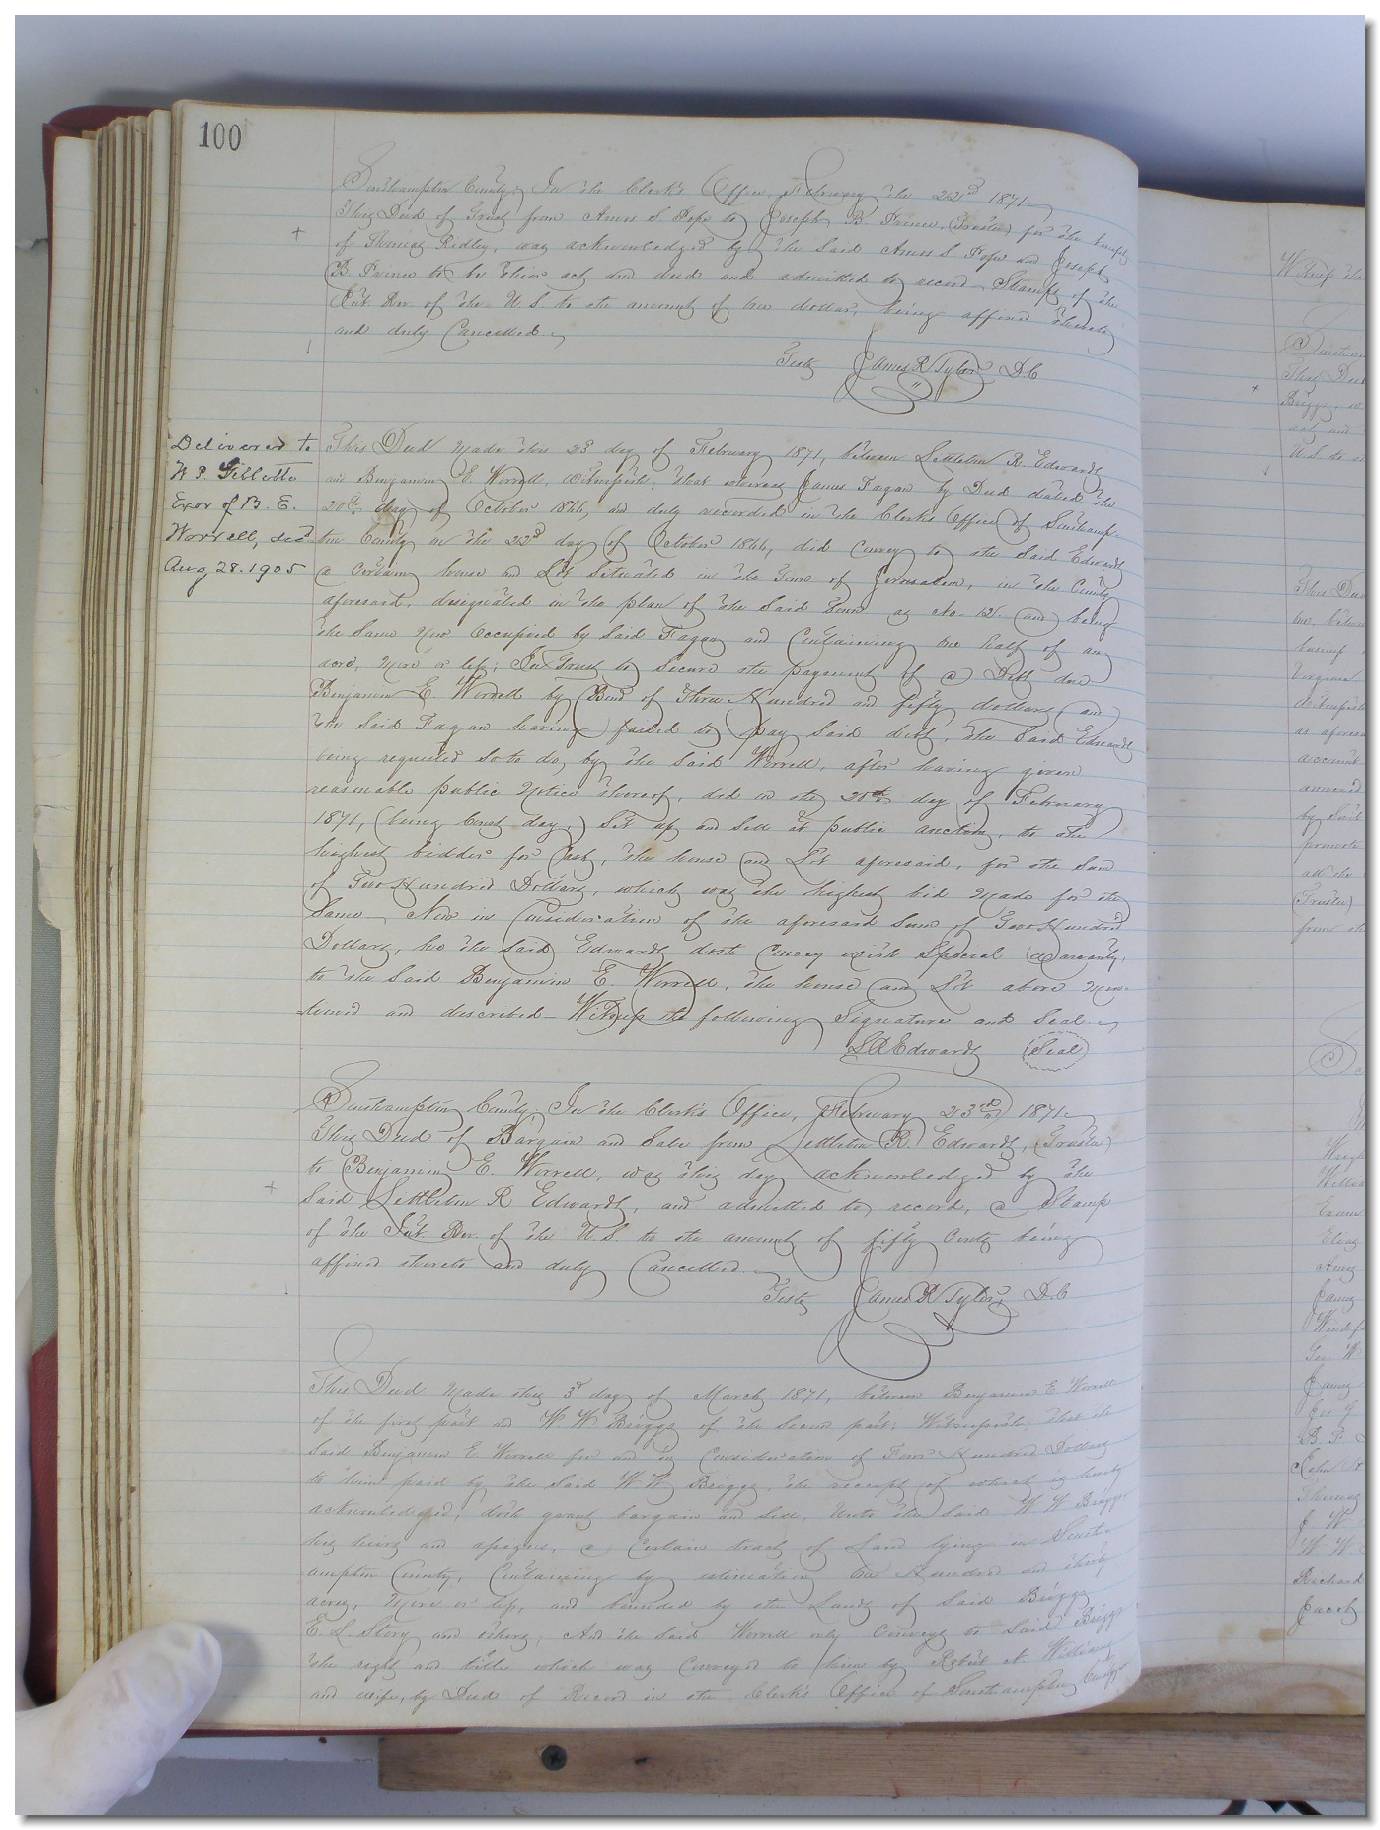 100
Southampton County, In the Clerk's Office, February the 22nd 1871
This Deed of Trust from Amos S Pope to Joseph B. Prince, (Trustee) for the benefit
of Thomas Ridley, was acknowledged by the Said Amos S Pope and Joseph
B Prince to be their act and deed and admitted to record Stamps of the
Int Rev of the U. S to the amount of one dollar, being affixed thereto
and duly Cancelled.
Teste James R Tyler D. C
Delivered to
Exor of B. E.
Worrell, decd
Aug 28. 1905
This Deed made this 23d day of February 1871, between Littleton R. Edwards
and Benjamin E. Worrell, Witnesseth, That whereas James Fagan by Deed dated the
20th day of October 1866, and duly recorded in the Clerk's Office of Southamp-
ton County on the 22d day of October 1866, did Convey to the Said Edwards
a Certain house and Lot Situated in the Town of Jerusalem, in the County
aforesaid, designated in the plan of the Said Town as No. 12. and being
the Same now Occupied by Said Fagan and Containing one half of an
acre, more or less; In Trust to Secure the payment of a Debt due
Benjamin E. Worrell by Bond of Three Hundred and fifty dollars, and
the Said Fagan having failed to pay Said debt, the Said Edwards
being requested so to do, by the Said Worrell, after having given
reasonable public Notice thereof, did on the 20th day of February
1871, (being Court day,) Set up and Sell at public auction, to the
highest bidder for Cash, the house and Lot aforesaid, for the Sum
of Two Hundred Dollars, which was the highest bid made for the
Same. Now in Consideration of the aforesaid Sum of Two Hundred
Dollars, he the Said Edwards doth Convey with Special Warranty,
to the Said Benjamin E. Worrell, the house and Lot above men-
-tioned and described - Witness the following Signature and Seal
L R Edwards (Seal)
Southampton County, In the Clerk's Office, February 23rd 1871.
This Deed of Bargain and Sale from Littleton R. Edwards, (Trustee)
to Benjamin E. Worrell, was this day acknowledged by the
Said Littleton R Edwards, and admitted to record, a Stamp
of the Int. Rev. of the U. S to the amount of fifty Cents being
affixed thereto and duly Cancelled.
Teste James R Tyler, D. C
This Deed Made this 3d day of March 1871, between Benjamin E Worrell
of the first part and W. W Briggs of the Second part; Witnesseth, that the
Said Benjamin E Worrell for and in Consideration of Four Hundred Dollars
to him paid by the Said W W Briggs, the receipt of which is hereby
acknowledged, doth grant bargain and Sell, Unto the Said W W Briggs
his heirs and assigns, a Certain tract of Land lying in South-
ampton County, Containing by estimation One Hundred and thirty
acres, More or less, and bounded by the Lands of Said Briggs
E. L. Story and others, And the Said Worrell only Conveys to Said Briggs
the right and title which was Conveyed to him by Robert N. Williams
and wife, by Deed of Record in the Clerk's Office of Southampton County